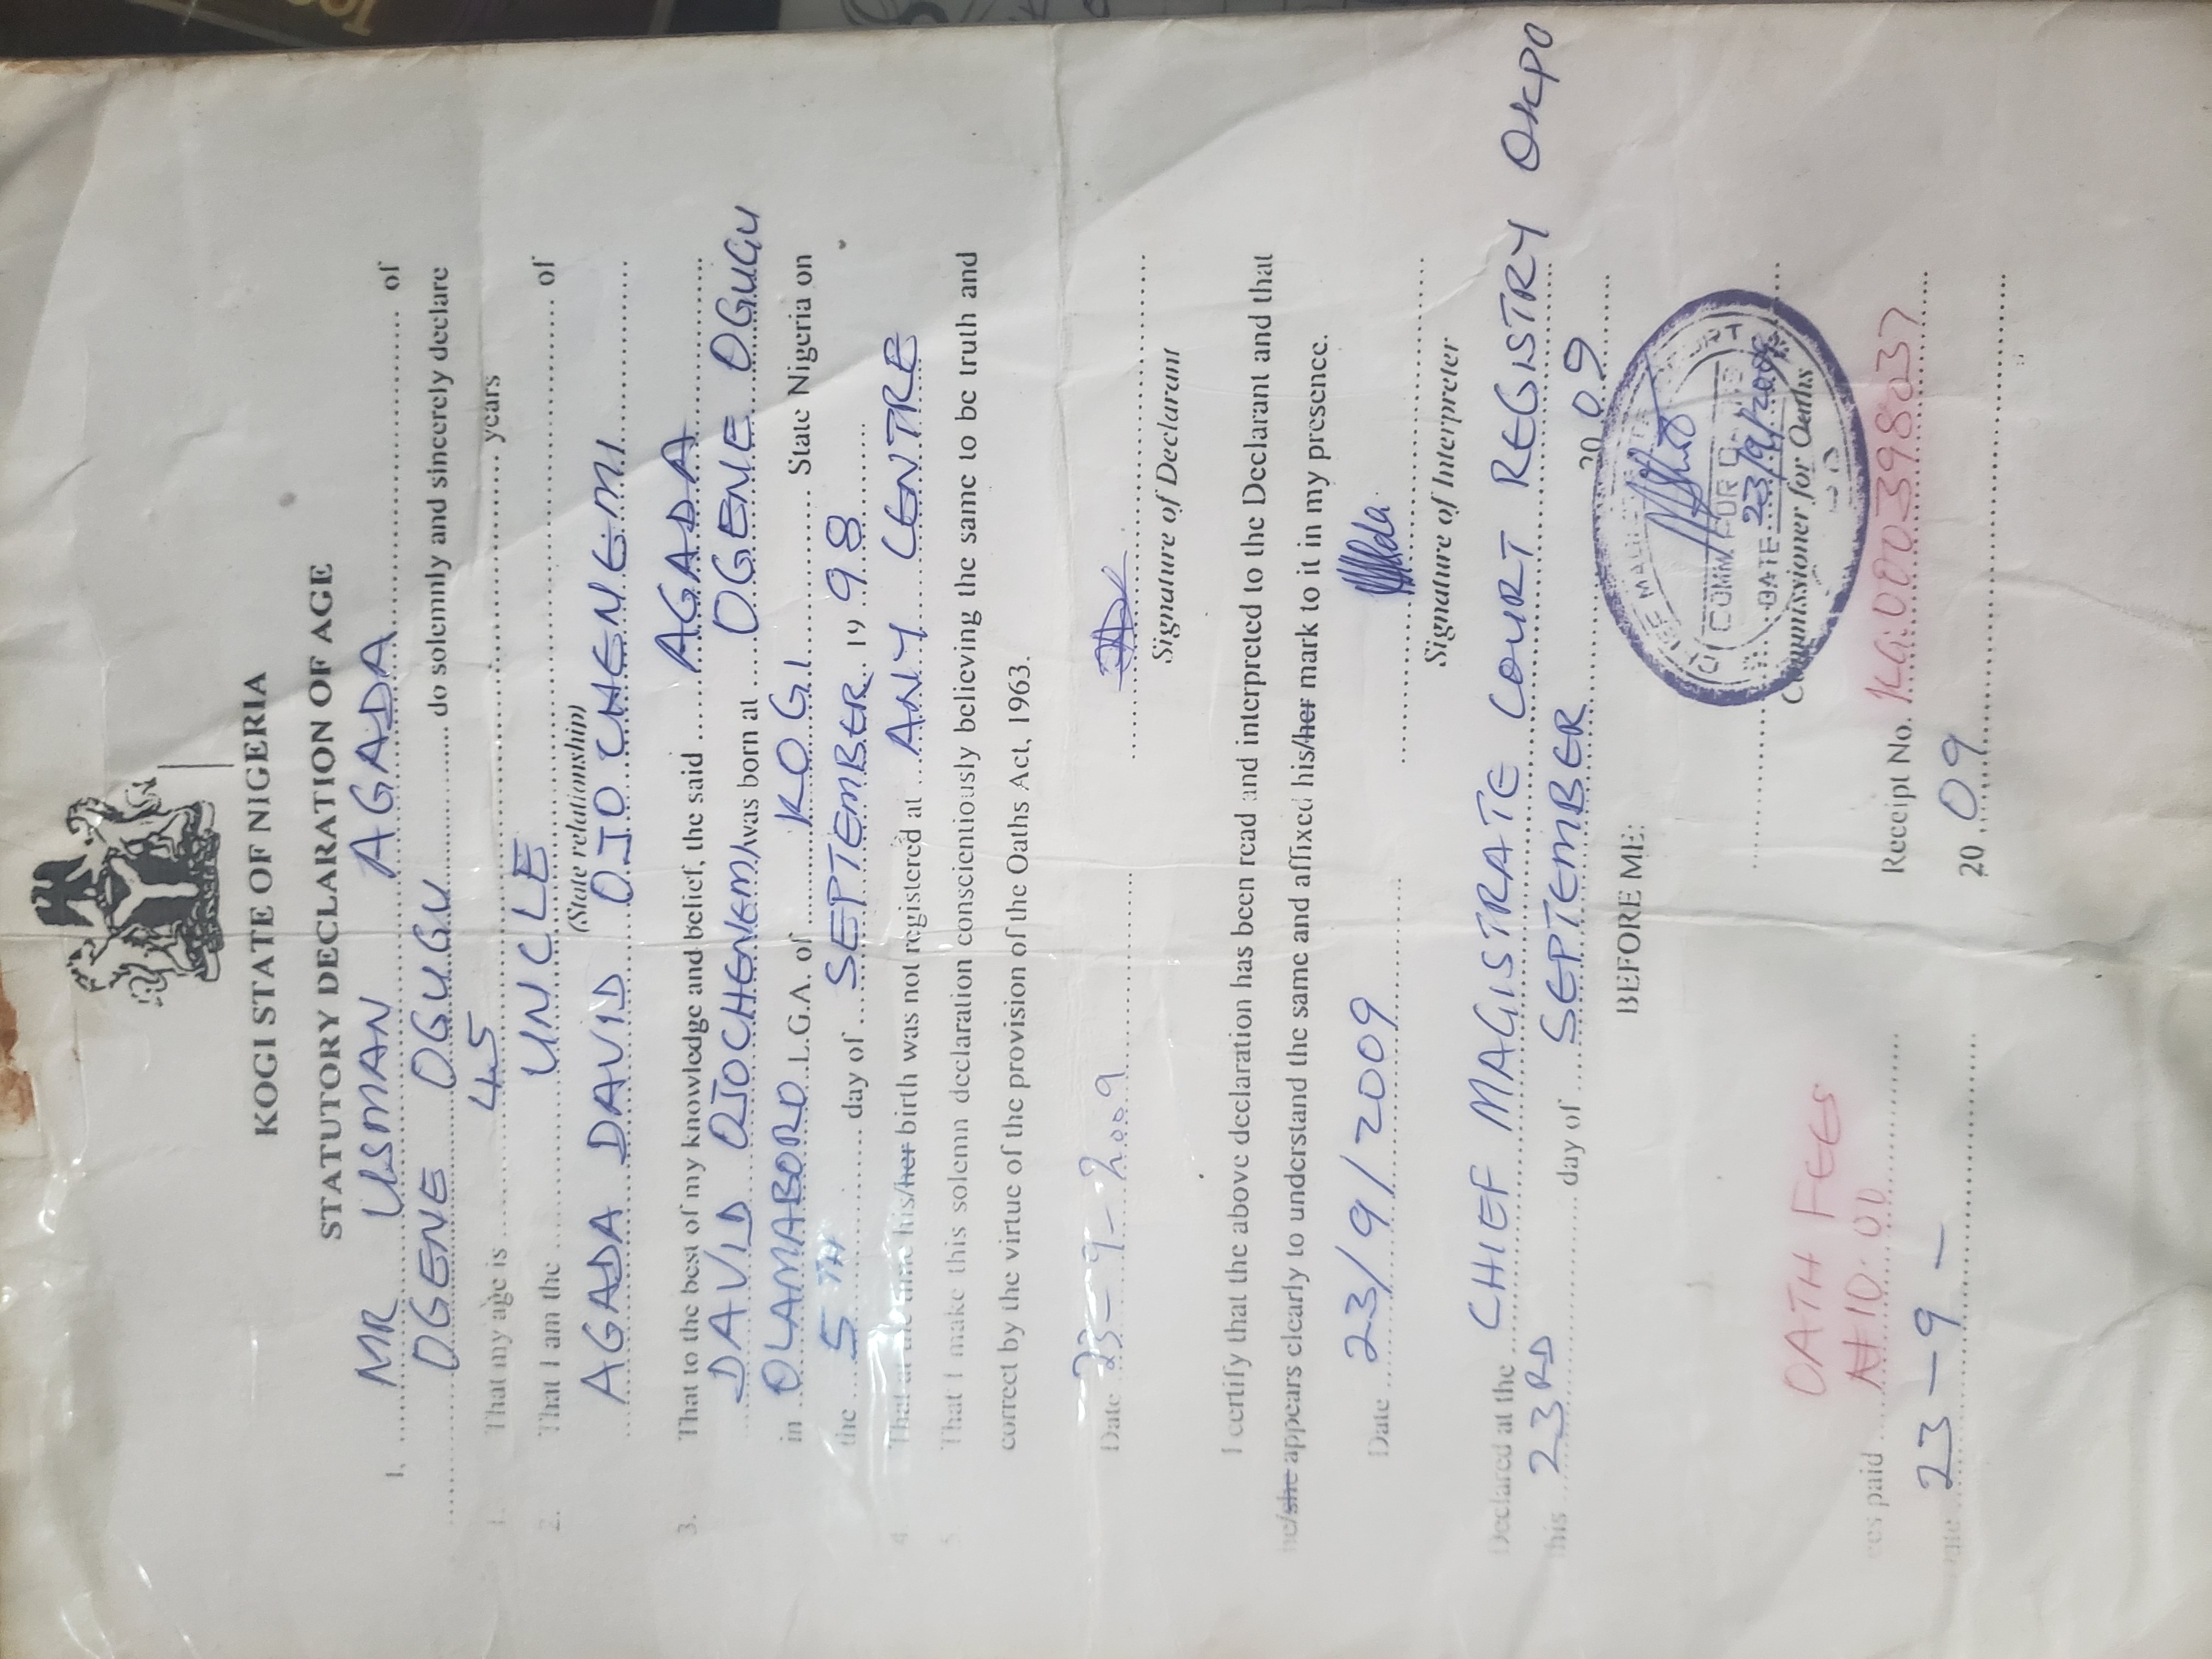 KOGI STATE OF NIGERIA
STATUTORY DECLARATION OF AGE
I, MR USMAN AGADA of
OGENE OGUGU do solemnly and sincerely declare
1. That my age is 45 years
2. That I am the UNCLE of
(State relationship)
AGADA DAVID OJOCHENEMI
3. That to the best of my knowledge and belief, the said AGADA
DAVID OJOCHENEMI was born at OGENE OGUGU
in OLAMABORO L.G.A. of KOGI State Nigeria on
the 5TH day of SEPTEMBER 19 98
4 That at the time his/her birth was not registered at ANY CENTRE
5 That I make this solemn declaration conscientiously believing the same to be truth and
correct by the virtue of the provision of the Oaths Act, 1963.
Date 23-9-2009
Signature of Declarant
I certify that the above declaration has been read and interpreted to the Declarant and that
he/she appears clearly to understand the same and affixed his/her mark to it in my presence.
Date 23/9/2009
Signature of Interpreter
Declared at the CHIEF MAGISTRATE COURT REGISTRY OKPO
this 23RD day of SEPTEMBER 20 09
BEFORE ME:
COMM FOR
DATE 23/9/2009
Commissioner for Oaths
OATH FEES
ees paid ₦10.00 Receipt No. KG000398037
23-9- 20 09